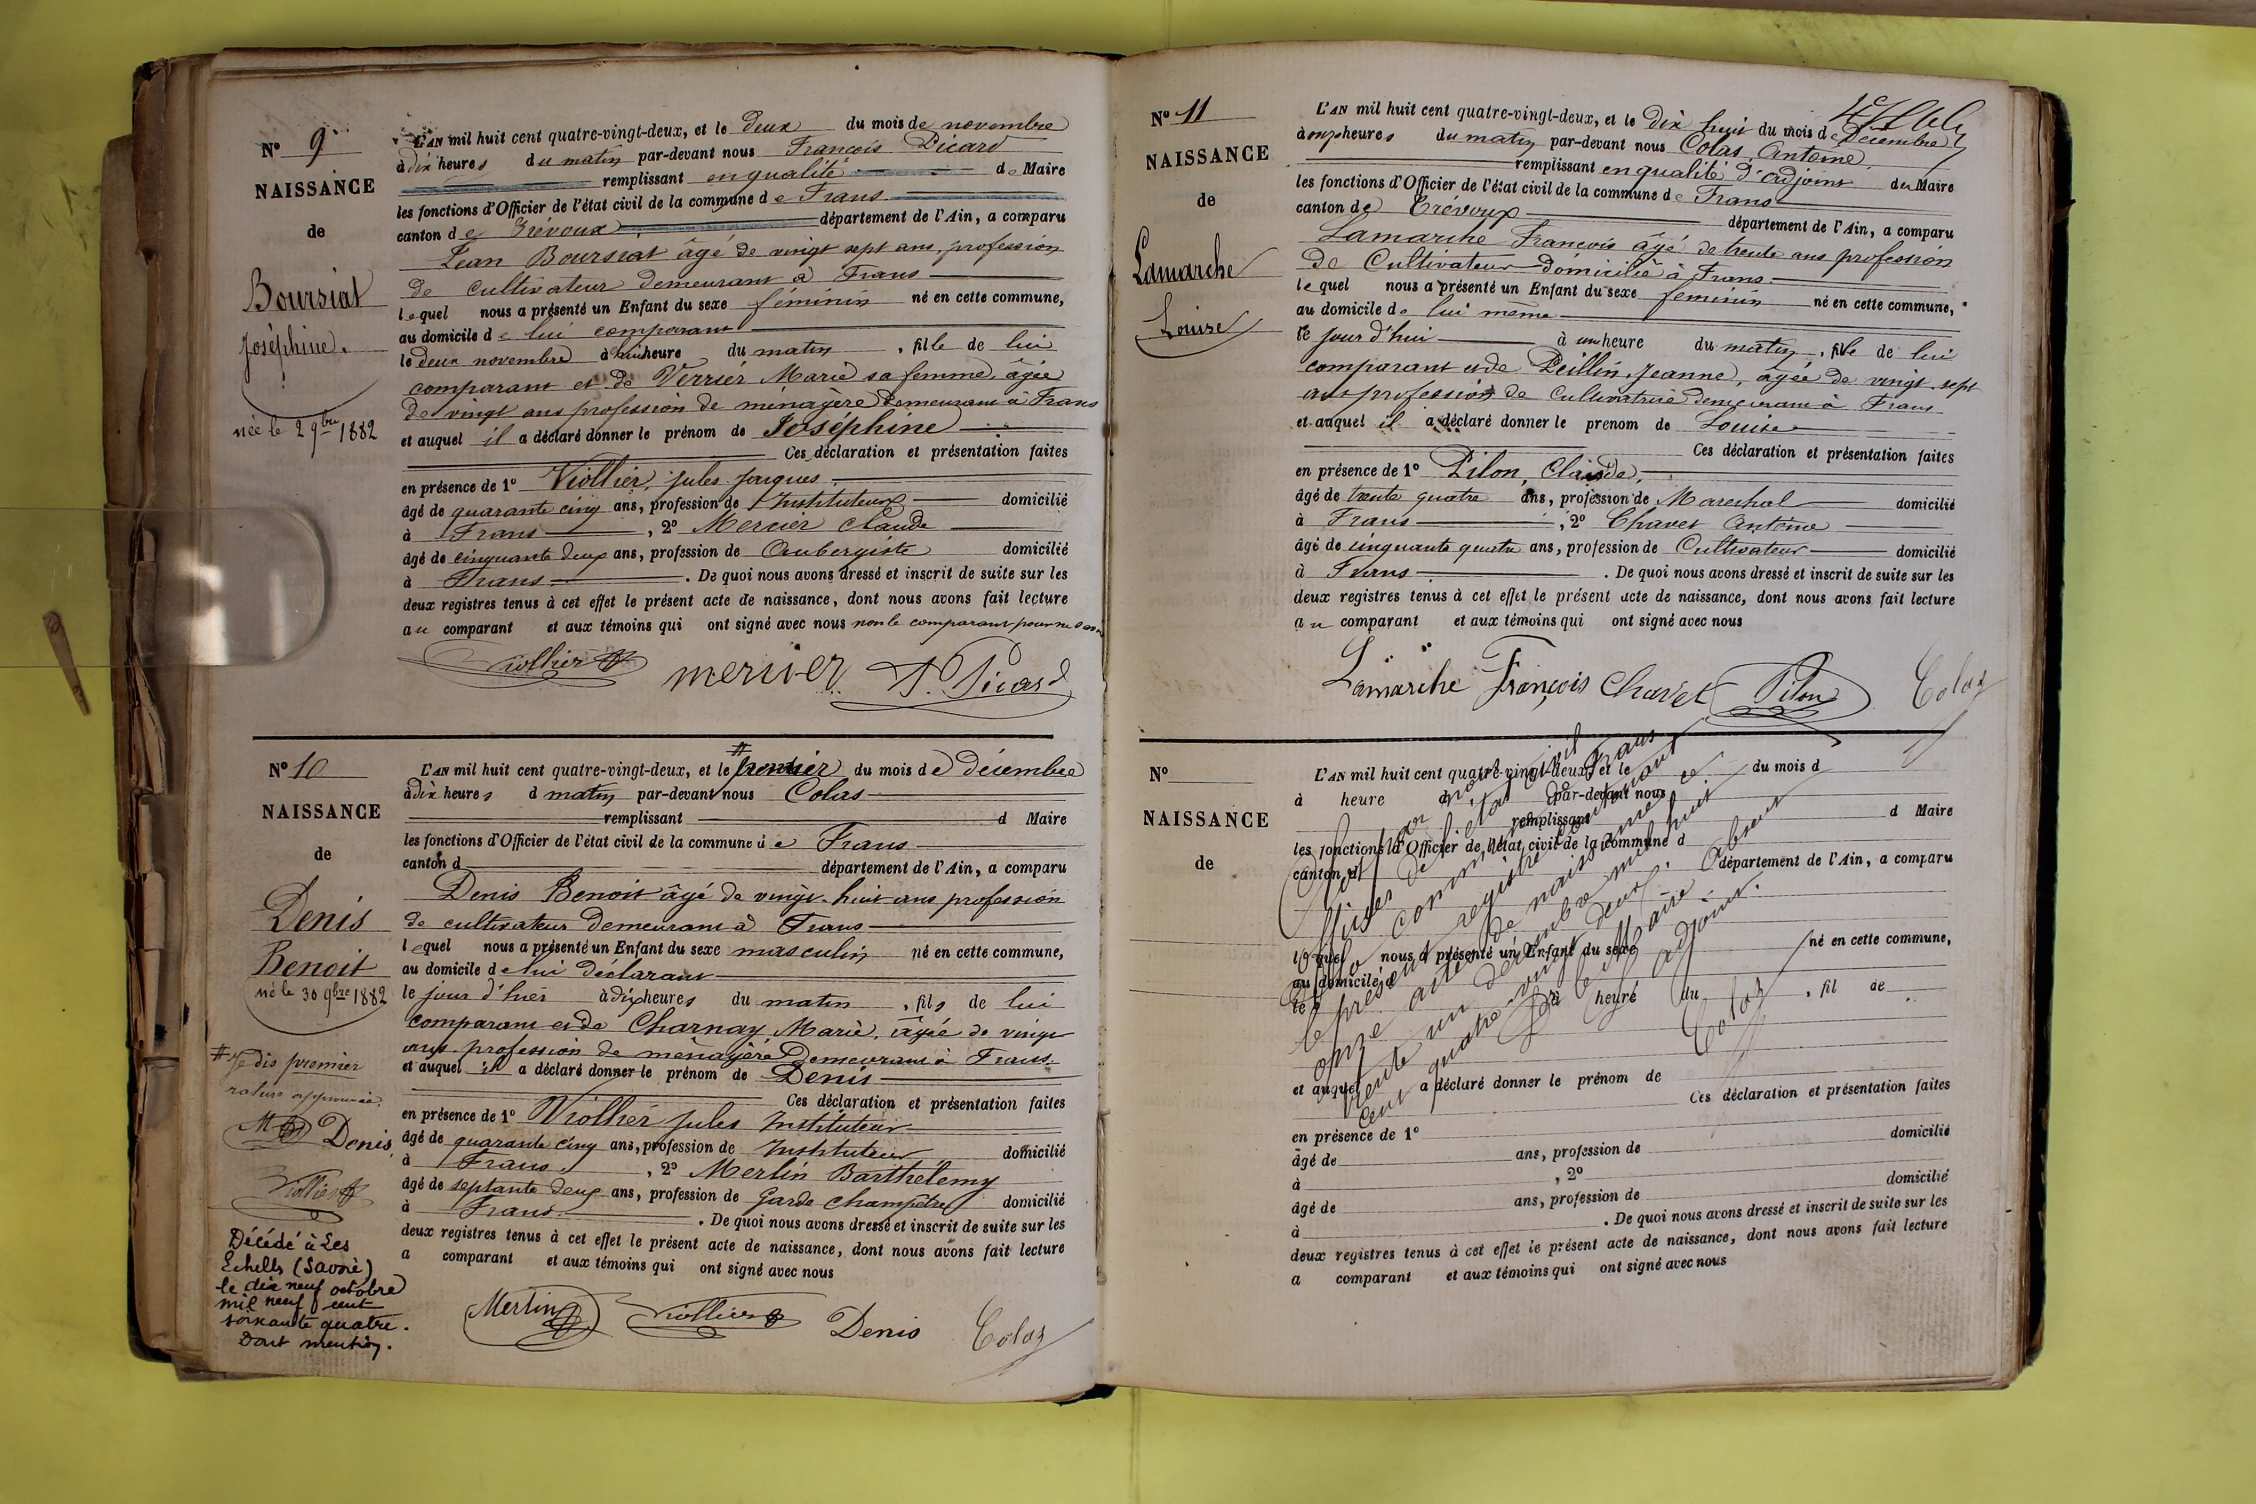 N° 9
NAISSANCE
de
Boursiat
Joséphine.
née le 2 9bre 1882
L'AN mil huit cent quatre-vingt-deux, et le deux du mois de novembre
à dix heures du matin par-devant nous François Picard
remplissant en qualité de Maire
les fonctions d'Officier de l'état civil de la commune de Frans
canton de Trévoux département de l'Ain, a comparu
Jean Boursiat âgé de vingt sept ans, profession
de cultivateur demeurant à Frans
lequel nous a présenté un Enfant du sexe féminin né en cette commune,
au domicile de lui comparant
le deux novembre à heure du matin, fille de lui
comparant et de Verrier Marie sa femme, âgée
de vingt ans profession de ménagère demeurant à Frans
et auquel il a déclaré donner le prénom de Joséphine
Ces déclaration et présentation faites
en présence de 1° Viollier, jules jacques
âgé de quarante cinq ans, profession de Instituteur domicilié
à Frans, 2° Mercier Claude
âgé de cinquante deux ans, profession de Aubergiste domicilié
à Frans. De quoi nous avons dressé et inscrit de suite sur les
deux registres tenus à cet effet le présent acte de naissance, dont nous avons fait lecture
au comparant et aux témoins qui ont signé avec nous non le comparant pour ne
Viollier mercier F. Picard
N° 10
NAISSANCE
de
Denis
Benoit
né le 30 9bre 1882
# Je dis premier
rature approuvée.
Denis
Viollier
Décédé à Les
Echelles (Savoie)
le dix neuf octobre
mil neuf cent
soixante quatre.
Dont mention.
L'AN mil huit cent quatre-vingt-deux, et le # premier du mois de décembre
à dix heures d matin par-devant nous Colas
remplissant d Maire
les fonctions d'Officier de l'état civil de la commune de Frans
canton d département de l'Ain, a comparu
Denis Benoit âgé de vingt-huit ans profession
de cultivateur demeurant à Frans
lequel nous a présenté un Enfant du sexe masculin né en cette commune,
au domicile de lui déclarant
le jour d'hier à dix heures du matin, fils de lui
comparant et de Charnay Marie, âgée de vingt
ans profession de ménagère demeurant à Frans
et auquel il a déclaré donner le prénom de Denis
Ces déclaration et présentation faites
en présence de 1° Viollier jules Instituteur
âgé de quarante cinq ans, profession de Instituteur domicilié
à Frans, 2° Merlin Barthélemy
âgé de septante deux ans, profession de Garde Champêtre domicilié
à Frans. De quoi nous avons dressé et inscrit de suite sur les
deux registres tenus à cet effet le présent acte de naissance, dont nous avons fait lecture
a comparant et aux témoins qui ont signé avec nous
Merlin Viollier Denis Colas
N° 11
NAISSANCE
de
Lamarche
Louise
L'AN mil huit cent quatre-vingt-deux, et le dix huit du mois de Décembre
à onze heures du matin par-devant nous Colas, Antoine
remplissant en qualité d'adjoint du Maire
les fonctions d'Officier de l'état civil de la commune de Frans
canton de Trévoux département de l'Ain, a comparu
Lamarche François âgé de trente ans profession
de Cultivateur domicilié à Frans
lequel nous a présenté un Enfant du sexe féminin né en cette commune,
au domicile de lui même
le jour d'hui à une heure du matin, fille de lui
comparant et de Peillin, Jeanne, âgée de vingt sept
ans profession de Cultivatrice demeurant à Frans
et auquel il a déclaré donner le prenom de Louise
Ces déclaration et présentation faites
en présence de 1° Pilon, Claude,
âgé de trente quatre ans, profession de Marechal domicilié
à Frans, 2° Chavet Antoine
âgé de cinquante quatre ans, profession de Cultivateur domicilié
à Frans. De quoi nous avons dressé et inscrit de suite sur les
deux registres tenus à cet effet le présent acte de naissance, dont nous avons fait lecture
au comparant et aux témoins qui ont signé avec nous
Lamarche François Chavet Pilon Colas
N°
NAISSANCE
de
L'AN mil huit cent quatre-vingt-deux, et le du mois d
à heure d par-devant nous
remplissant d Maire
les fonctions d'Officier de l'état civil de la commune d
canton d département de l'Ain, a comparu
l quel nous a présenté un Enfant du sexe né en cette commune,
au domicile d
le à heure du, fil de
et auquel a déclaré donner le prénom de
Ces déclaration et présentation faites
en présence de 1°
âgé de ans, profession de domicilié
à, 2°
âgé de ans, profession de domicilié
à. De quoi nous avons dressé et inscrit de suite sur les
deux registres tenus à cet effet le présent acte de naissance, dont nous avons fait lecture
a comparant et aux témoins qui ont signé avec nous
Clos par nous
officier de l'état civil
de la commune de Frans
le présent registre contenant
onze actes de naissances ce
trente un décembre mil huit
cent quatre-vingt deux.
Pr le Maire absent
adjoint.
Colas